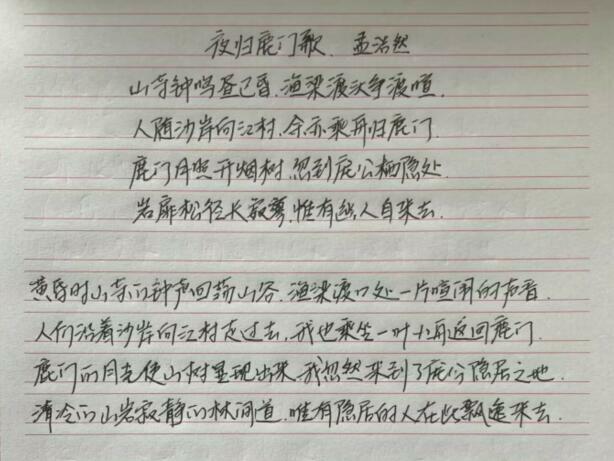 夜归鹿门歌 孟浩然
山寺钟鸣昼已昏,渔梁渡头争渡喧.
人随沙岸向江村,余亦乘舟归鹿门.
鹿门月照开烟树,忽到庞公栖隐处.
岩扉松径长寂寥,惟有幽人自来去.
黄昏时山寺的钟声回荡山谷,渔梁渡口处一片喧闹的声音.
人们沿着沙岸向江村走过去,我也乘坐一叶小舟返回鹿门.
鹿门的月光使山树显现出来,我忽然来到了庞公隐居之地.
清冷的山岩寂静的林间道,唯有隐居的人在此飘逸来去.